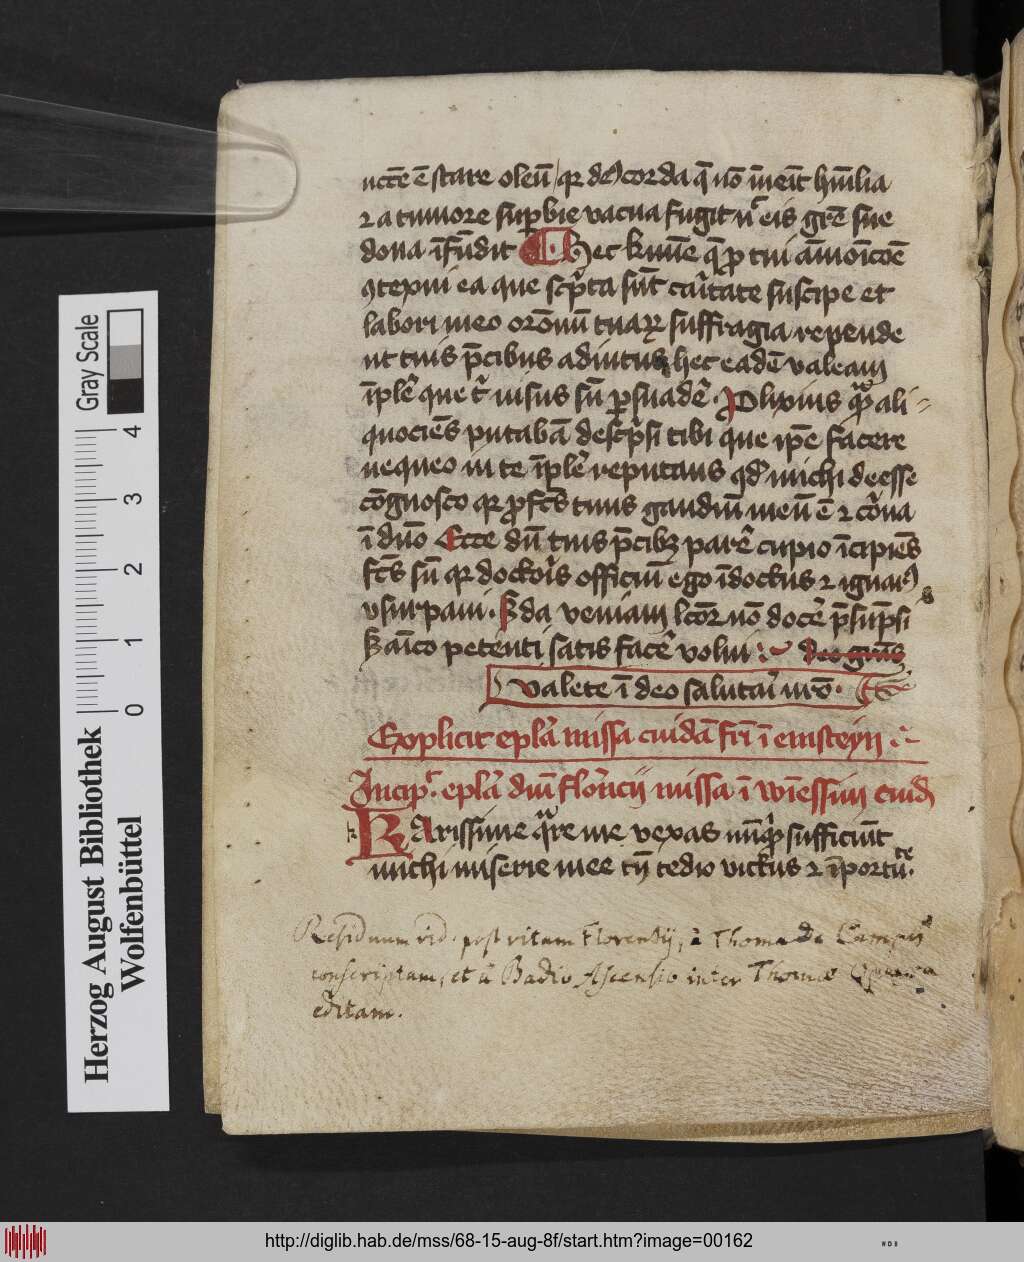 uctēe ē stare oleū / qr ad corda q̄ nō īueīt hūīlia
ꝛ a tumore suꝑbie vacua fugit ... eis grē sue
dona īfūdit Hec kūme q̄ ꝓ tui āmoīcōe
ꝯtexui ea que scp̄ta sūt cāitate suscipe et
labori meo orōnū tuaꝝ suffragia repende
ut tuis p̄cibus adiutus hec eadē valeam
īplēr que ... nisus sū ꝑsuadēr. Plixius ... ali
quociēs putabā desc̄psi tibi que ip̄e facere
nequeo in te īplēr reputans qd michi deesse
cōgnosco qr ꝓfc̄s tuus gaudiū meū ē ꝛ cōrona
ī dn̄o Ecce dū tuis p̄cibꝫ parēr cupio īcipiēs
fc̄s sū qr doctoris officiū ego īdoctus ꝛ ignarꝰ
vsurpaui. ... da veniam lc̄or nō docēr p̄sūpsi
ꝫ aīco petenti satis facēr volui : deo grās
valete ī deo salutari nrō.
Explicit epla missa cuidā fr̄i ī emsteyn
Incip. epla dn̄i florēcij missa ī wīessim cuid
k Karissime qare me vexas nūqd sufficiūt
michi miserie mee cū tedio victus ꝛ īportū te.
Residuum vid. post vitam Florentij, à Thoma de Campis
conscriptam, et à Badio Ascensio inter Thomae Opera
editam.
Herzog August Bibliothek
Wolfenbüttel
Gray Scale
0 1 2 3 4
http://diglib.hab.de/mss/68-15-aug-8f/start.htm?image=00162
WDB